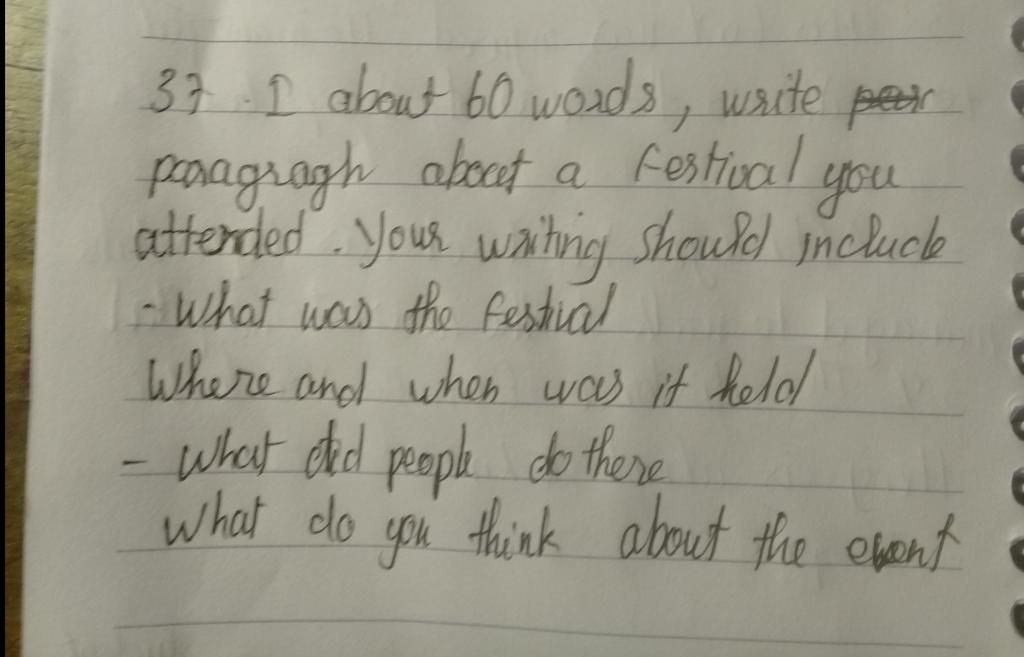 37. I about 60 words, write
paragragh about a festival you
attended. Your writing should include
- What was the festival
Where and when was it held
- What did people do there
What do you think about the event